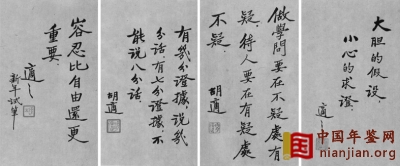 大胆的假設，
小心的求證。
適之
做學問要在不疑處有
疑，待人要在有疑處
不疑
胡適
有幾分證據，說幾
分話。有七分證據，不
能說八分話。
胡適
容忍比自由還更
重要。
適之
新年試筆
中国年鉴网
nianjian.org